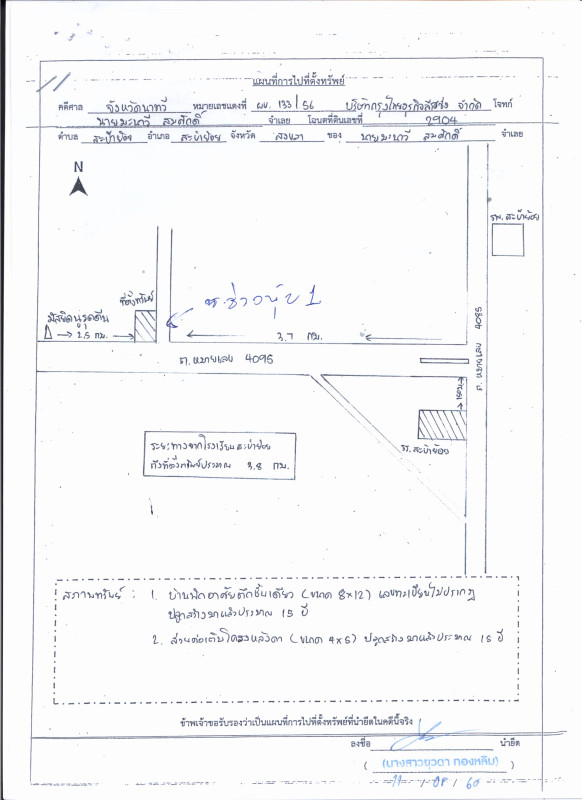 แผนที่การไปที่ตั้งทรัพย์
คดีศาล จังหวัดนาทวี หมายเลขแดงที่ ผบ. 133/56 บริษัทกรุงไทยธุรกิจลีสซิ่ง จำกัด โจทก์
นายมะนาวี สมศักดิ์ จำเลย โฉนดที่ดินเลขที่ 2904
ตำบล สะบ้าย้อย อำเภอ สะบ้าย้อย จังหวัด สงขลา ของ นายมะนาวี สมศักดิ์ จำเลย
N
รพ. สะบ้าย้อย
ที่ตั้งทรัพย์
มัสยิดนูรุดดีน
2.5 กม.
3.7 กม.
ถ. หมายเลข 4095
ถ. หมายเลข 4085
รร. สะบ้าย้อย
ระยะทางจากโรงเรียนสะบ้าย้อย
ถึงที่ตั้งทรัพย์ประมาณ 3.8 กม.
สภาพทรัพย์ : 1. บ้านพักอาศัยตึกชั้นเดียว (ขนาด 8×12) เลขทะเบียนไม่ปรากฏ
ปลูกสร้างมาแล้วประมาณ 15 ปี
2. ส่วนต่อเติมโครงหลังคา (ขนาด 4×6) ปลูกสร้างมาแล้วประมาณ 15 ปี
ข้าพเจ้าขอรับรองว่าเป็นแผนที่การไปที่ตั้งทรัพย์ที่นำยึดในคดีนี้จริง
ลงชื่อ นำยึด
( (นางสาวยุวดา ทองหลิม) )
11 / 08 / 60